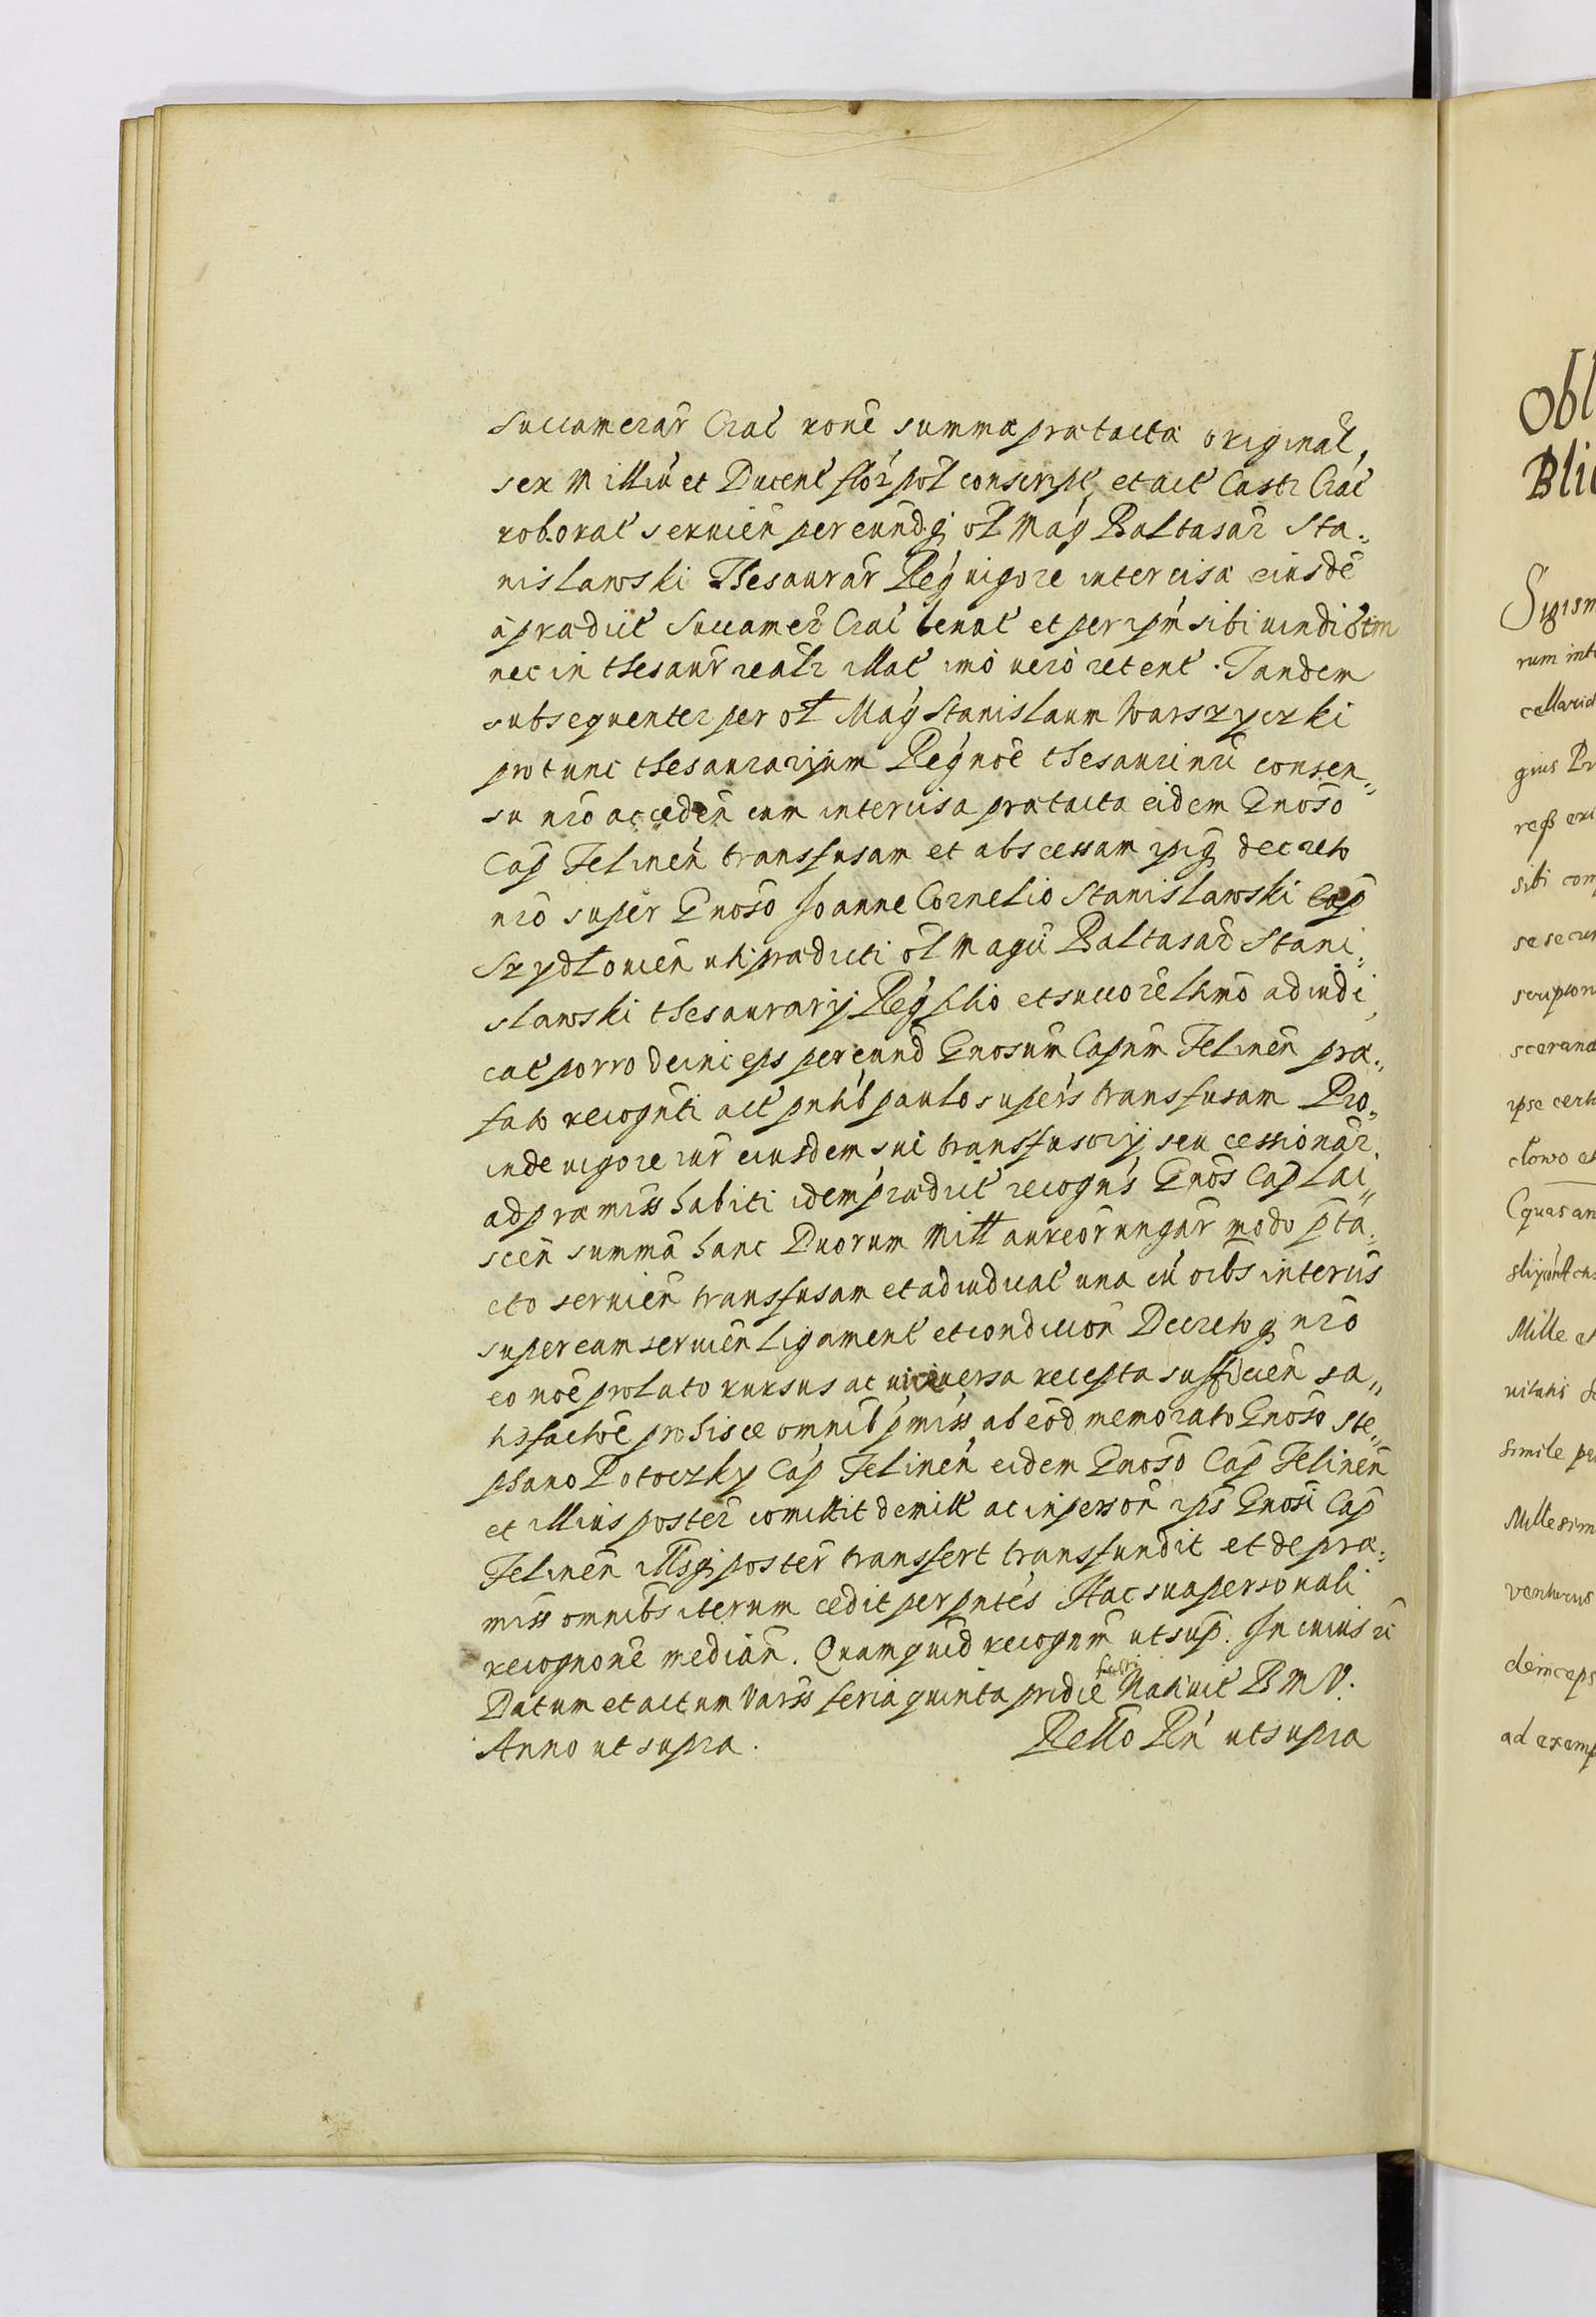 Succamerar̄ Crac̄ rone summæ prætactæ original,
sex Milliū et Ducent flor pol conscript et act Castr Crac
roborat seruien per eundq ol Mag Baltasar Sta-
nislawski Thesaurar Reg uigore intercisæ eiusdē
a prædict Succamer Crac leuat et per ipm sibi uindi
nec in thesaur realr illat imo uero retent. Tandem
subsequenter per ol Mag Stanislaum Warszyczki
pro tunc thesaurarium Reg noē thesauri nri consen-
su nro acceden cum intercisa prætacta eidem Gnoso
Cap Felinen transfusam et abscessam ipiq decreto
nro super Gnoso Joanne Cornelio Stanislawski Cap
Szydlouien uti prædicti ol Magci Baltasar Stani-
slawski thesaurarij Reg filio et succore ltimo adiudi-
cat porro deinceps per eund Gnosum Capnm Felinen præ-
fato recognti act pntib paulo supers transfusam Pro-
inde uigore iur eiusdem sui transfusorij seu cessionar
ad præmiss habiti idem prædict recogns Gnos Cap Lai-
scen summā hanc Duorum Mill aureor ungar modo pta-
cto seruien transfusam et adiudicat una cū oibs interus
super eam seruien ligament et condicion Decretoq nro
eo noē prolato rursus ac uiceuersa recepta sufficien sa-
tisfactoē pro hisce omnib pmiss ab eod memorato Gnoso Ste-
phano Potoczky Cap Felinen eidem Gnoso Cap Felinen
et illius poster comittit demitt ac in person ips Gnosi Cap
Felinen illisq poster transfert transfundit et de præ-
miss omnibs iterum cedit per pntes Hac sua personali
recognone median. Quamquid recognm ut sup. In cuius r
Datum et actum Vars feria quinta pridie festi Natiuit B M V.
Anno ut supra. Rello Rn ut supra
Obl
Bli
Sigism
rum int
cellaria
gius Pr
sibi com
se secun
scerand
ipse cert
Mille et
simile pe
Millesim
venturus
deinceps
ad exemp